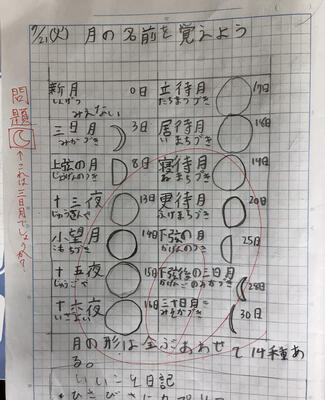 7/21(火) 月の名前を覚えよう
新月 0日
しんげつ
みえない
三日月 3日
みかづき
上弦の月 8日
じょうげんのつき
十三夜 13日
じゅうさんや
小望月 14日
こもちづき
十五夜 15日
じゅうごや
十六夜 16日
いざよい
立待月 17日
たちまちづき
居待月
いまちづき
寝待月
ねまちづき
更待月 20日
ふけまちづき
下弦の月 25日
かげんのつき
下弦後の三日月 28日
三十日月 30日
みそかづき
問題
↑これは三日月でしょうか?
月の形は全ぶあわせて14種あ
る。
いいこと日記